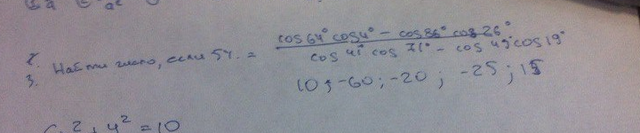 2.
3. Найти число, если 5% = (cos 64° cos 4° - cos 86° cos 26°) / (cos 41° cos 71° - cos 49° cos 19°)
10; -60; -20; -25; 15
² + 4² = 10